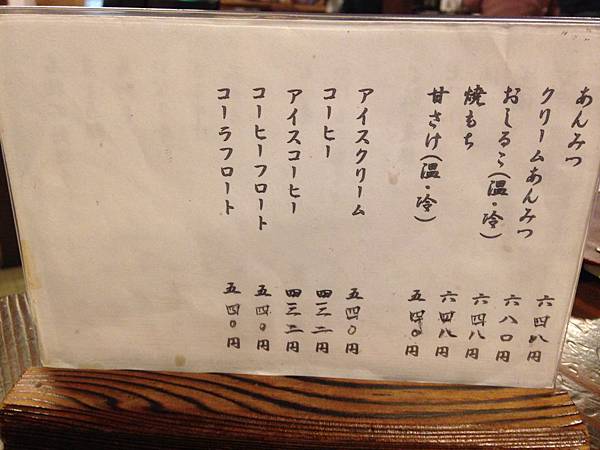 あんみつ 六四八円
クリームあんみつ 六八〇円
おしるこ(温・冷) 六四八円
焼もち 六四八円
甘さけ(温・冷) 五四〇円
アイスクリーム 五四〇円
コーヒー 四三二円
アイスコーヒー 四三二円
コーヒーフロート 五四〇円
コーラフロート 五四〇円